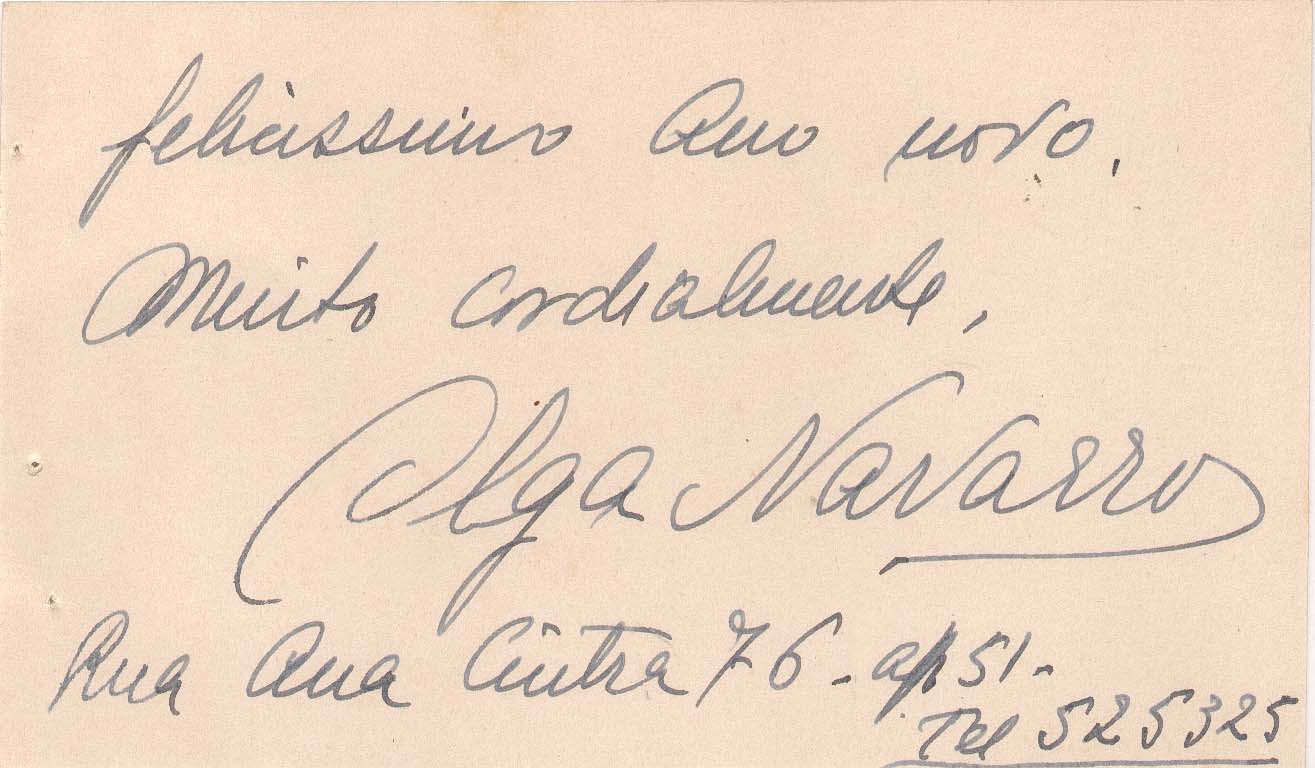 felicissimo Ano novo.
Muito cordialmente,
Olga Navarro
Rua Ana Cintra 76 - ap 51 -
Tel 525325